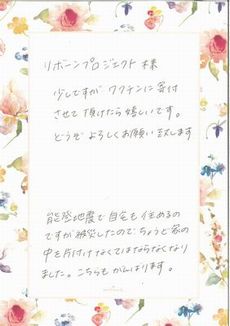 リボーンプロジェクト 様
少しですが ワクチンに寄付
させて頂けたら嬉しいです。
どうぞ よろしくお願い致します
能登地震で自宅も住めるの
ですが被災したので ちょうど家の
中を片付けなくてはならなくなり
ました。こちらもがんばります。